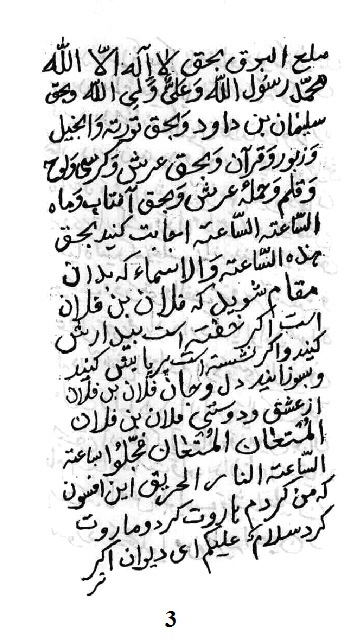 ملع البرق بحق لا اله الّا اللّه
محمّد رسول اللّه وعلیّ ولی اللّه وبحق
سلیمان بن داود وبحق توریة وانجیل
وزبور وقرآن وبحق عرش وکرسی ولوح
وقلم وحملهٔ عرش وبحق آفتاب وماه
السّاعته السّاعته اجابت کنید بحق
هذه السّاعته والاسماء که بدان
مقام شوید که فلان بن فلان
است اکر خفته است بیدارش
کنید واکر نشسته است برپا یش کنید
وبسوزانید دل وجان فلان بن فلان
از عشق و دوستی فلان بن فلان
المُتعان المُتعان عجّلوا ساعته
السّاعته النار الحریق این افسون
که من کردم هاروت کرد وماروت
کرد سلامٌ علیکم ای دیوان اکر
3